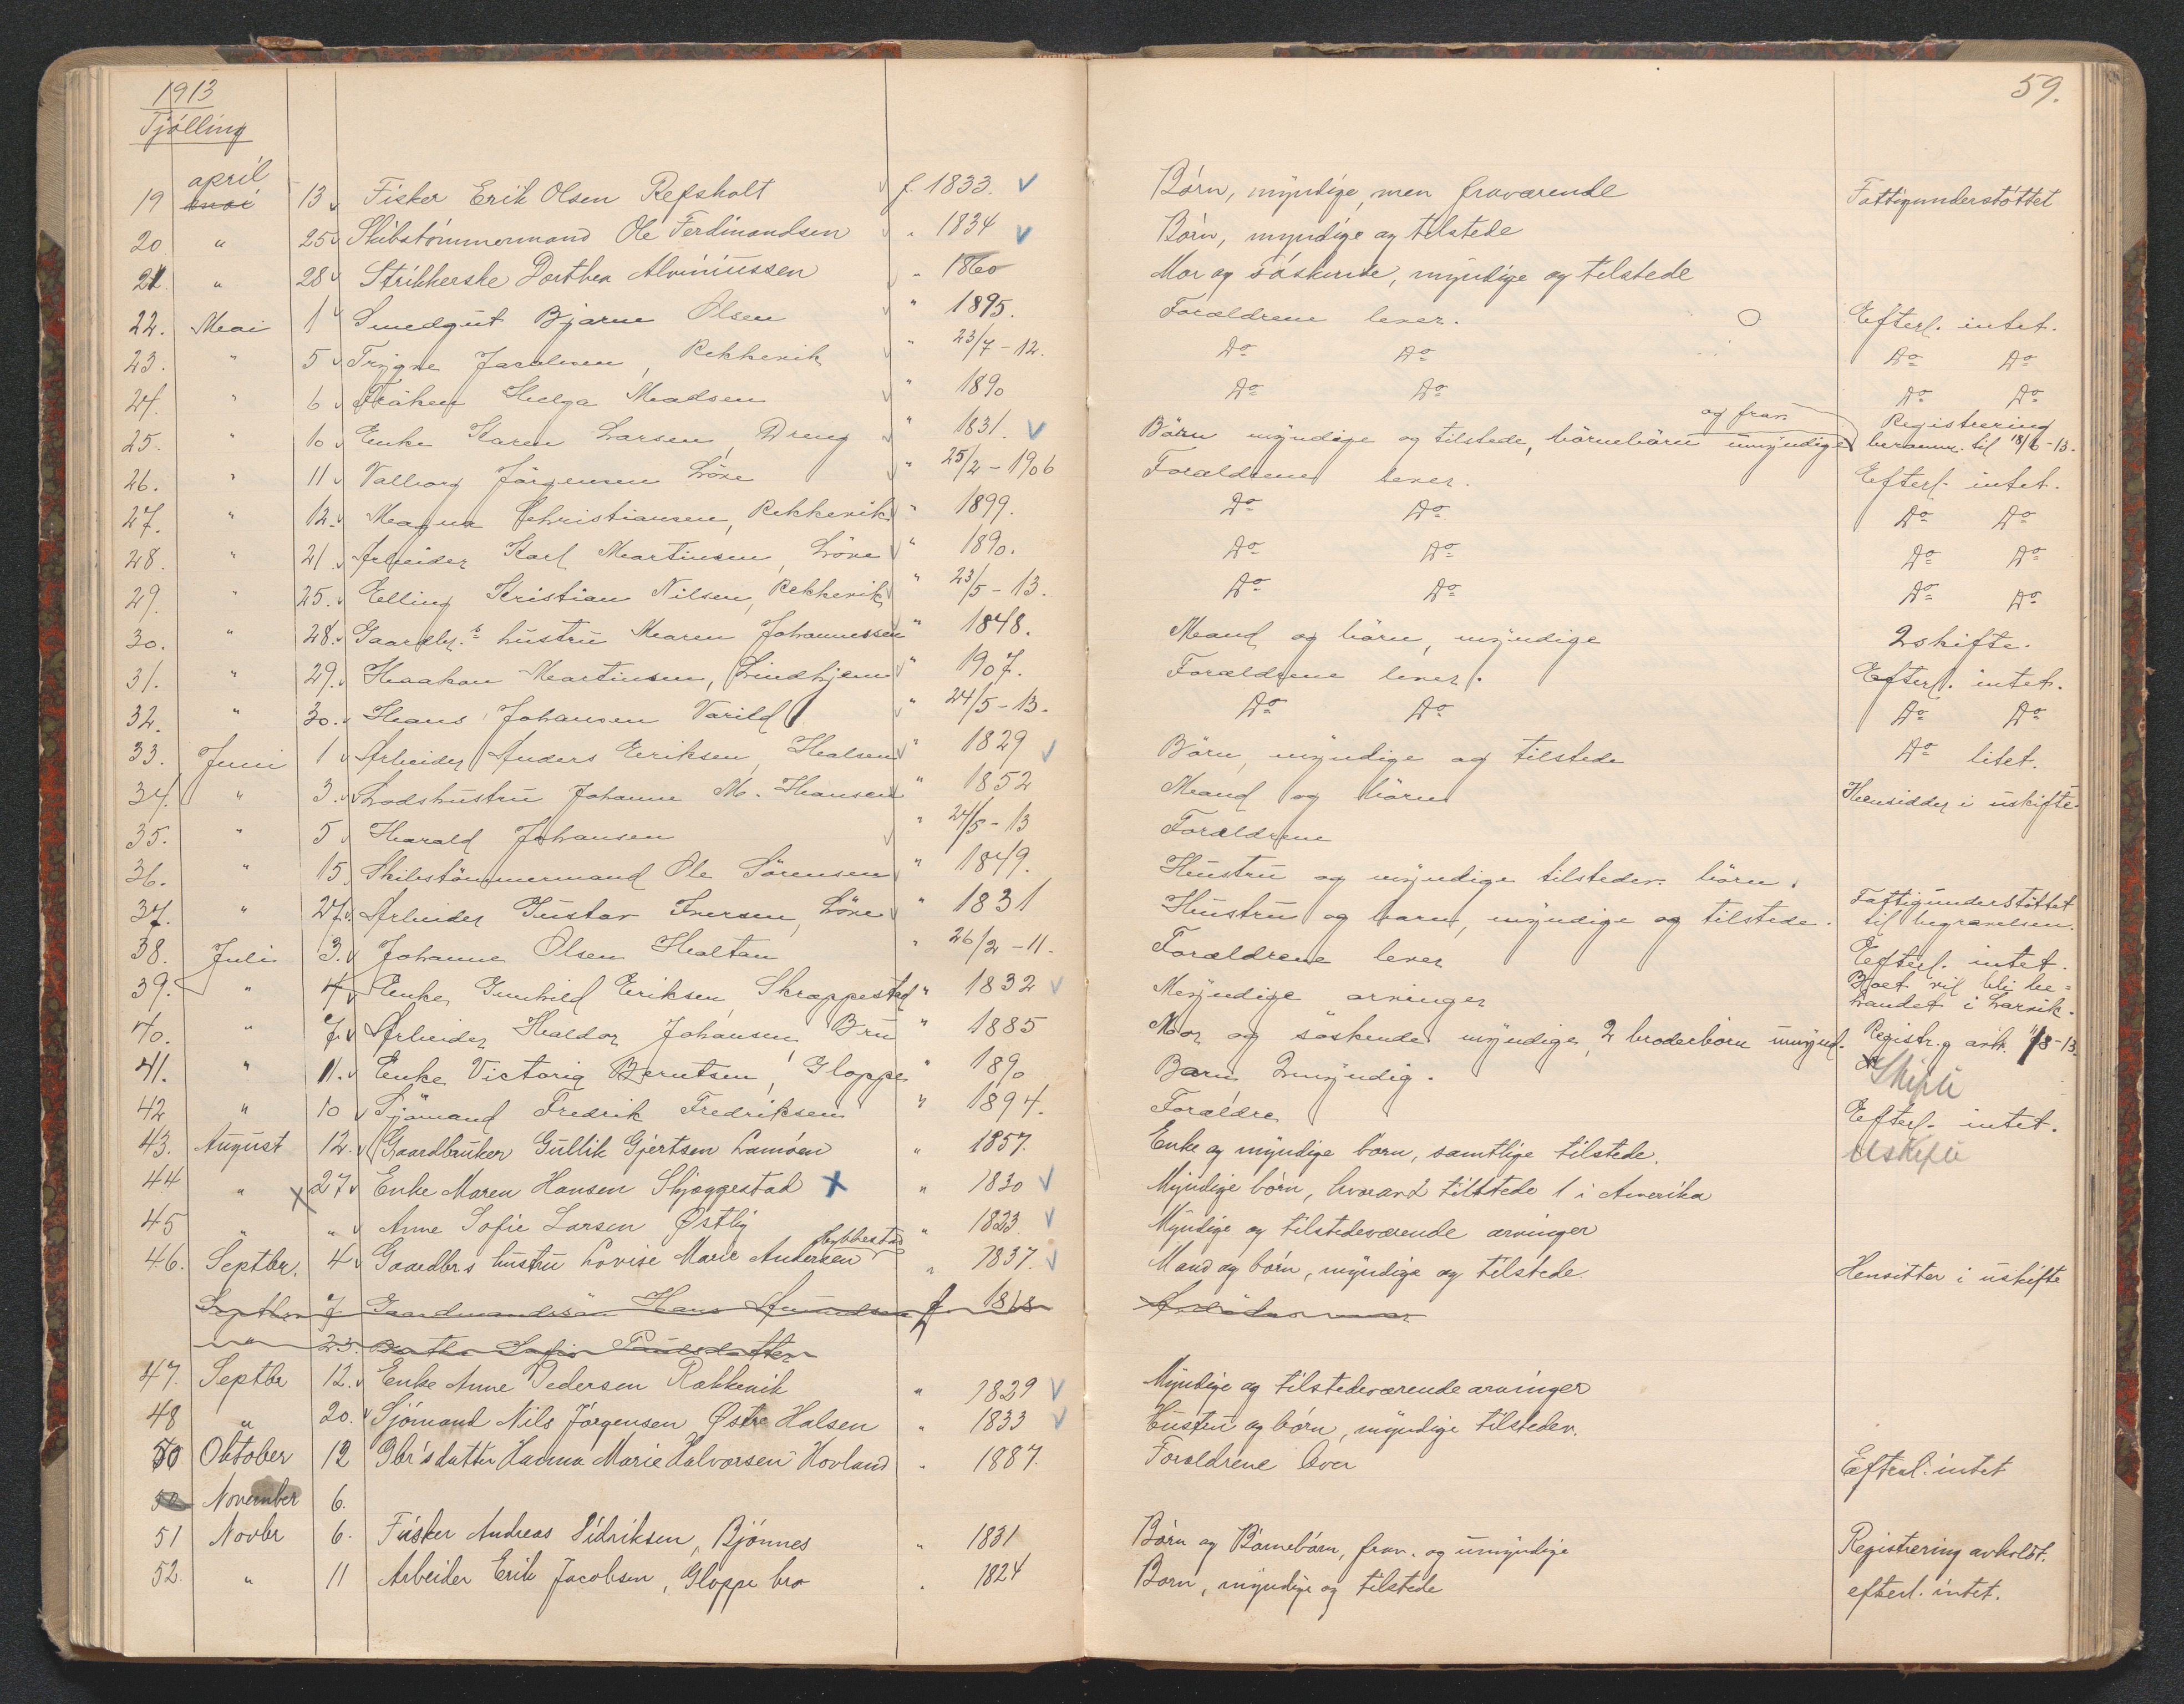 1913
59.
Tjölling
19 april mai 13 Fisker Erik Olsen Refsholt f. 1833. Börn, myndige, men fraværende Fattigunderstöttet
20 " 25 Skibstömmermand Ole Ferdinandsen " 1834 Börn, myndige og tilstede
21. " 28 Strikkerske Dorthea Alvinussen " 1860 Mor og söskende, myndige og tilstede
22. Mai 1 Smedgut Bjarne Olsen " 1895. Forældrene lever. Efterl. intet.
23. " 5 Trygve Jacobsen, Rekkevik " 23/7-12. Do Do Do Do
24. " 6 Fröken Helga Madsen " 1890 Do Do Do Do
25. " 10 Enke Karen Larsen, Dreng " 1831. Börn myndige og tilstede, börnebörn umyndige og frav. Registrering beramm. til 18/6-13.
26. " 11 Valborg Jörgensen Löve " 25/2-1906 Forældrene lever. Efterl. intet.
27. " 12. Magna Christiansen, Rekkevik " 1899. Do Do Do Do
28. " 21. Arbeider Karl Martinsen, Löve " 1890. Do Do Do Do
29. " 25. Elling Kristian Nilsen, Rekkevik " 23/5-13. Do Do Do Do
30. " 28. Gaardbr.s hustru Maren Johannessen " 1848. Mand og börn, myndige 2skifte.
31. " 29. Haakon Martinsen, Lindhjem " 1907. Forældrene lever. Efterl. intet.
32. " 30. Hans Johansen Varild " 24/5-13. Do Do Do Do
33. Juni 1 Arbeider Anders Eriksen, Halsen " 1829 Börn, myndige og tilstede Do litet.
34. " 3. Lodshustru Johanne M. Hansen " 1852 Mand og börn Hensidder i uskifte.
35. " 5 Harald Johansen " 24/5-13 Forældrene
36. " 15 Skibstömmermand Ole Sörensen " 1849. Hustru og myndige tilstedev. börn.
37. " 27. Arbeider Gustav Iversen, Löve " 1831 Hustru og barn, myndige og tilstede. Fattigunderstöttet til begravelsen.
38. Juli 3. Johanne Olsen Haltan " 26/2-11. Forældrene lever Efterl. intet.
39. " 4 Enke Gunhild Eriksen, Skrappestad " 1832 Myndige arvinger Boet vil bli behandlet i Larvik.
40. " 7. Arbeider Haldor Johansen Bru " 1885 Mor og söskende myndige, 2 broderbörn umynd. Registr.g avh. 1/8-13.
41. " 11. Enke Victoria Berntsen, Gloppe " 1890 Barn 2myndig. Skifte
42 " 10 Sjömand Fredrik Fredriksen " 1894. Forældre Efterl. intet.
43. August 12. Gaardbruker Gullik Gjertsen Lamöen " 1857. Enke og myndige börn, samtlige tilstede. Uskifte
44 " x 27 Enke Maren Hansen Skjæggestad x " 1830 Myndige börn, hvorav 2 tilstede 1 i Amerika
45 " " Anne Sofie Larsen Østby " 1823 Myndige og tilstedeværende arvinger
46. Septbr. 4 Gaardbrs hustru Lovise Marie Andersen Lybbestad " 1837. Mand og börn, myndige og tilstede. Hensitter i uskifte
Septbr 7 Gaardmandssön Hans Amundsen f 1818
" 23. Berthe Sofie Paulsdatter
47. Septbr 12. Enke Anne Pedersen Rakkevik " 1829 Myndige og tilstedeværende arvinger
48 " 20. Sjömand Nils Jörgensen Østre Halsen " 1833 Hustru og börn, myndige tilstedev.
50 Oktober 12 Gbr's datter Hanna Marie Halvorsen Hovland " 1887. Forældrene lever Efterl. intet
November 6.
51 Novbr 6. Fisker Andreas Didriksen, Bjönnes " 1831 Börn og Börnebörn, frav. og umyndige Registrering avholdt.
52. " 11 Arbeider Erik Jacobsen, Gloppe bro " 1824 Börn, myndige og tilstede efterl. intet.